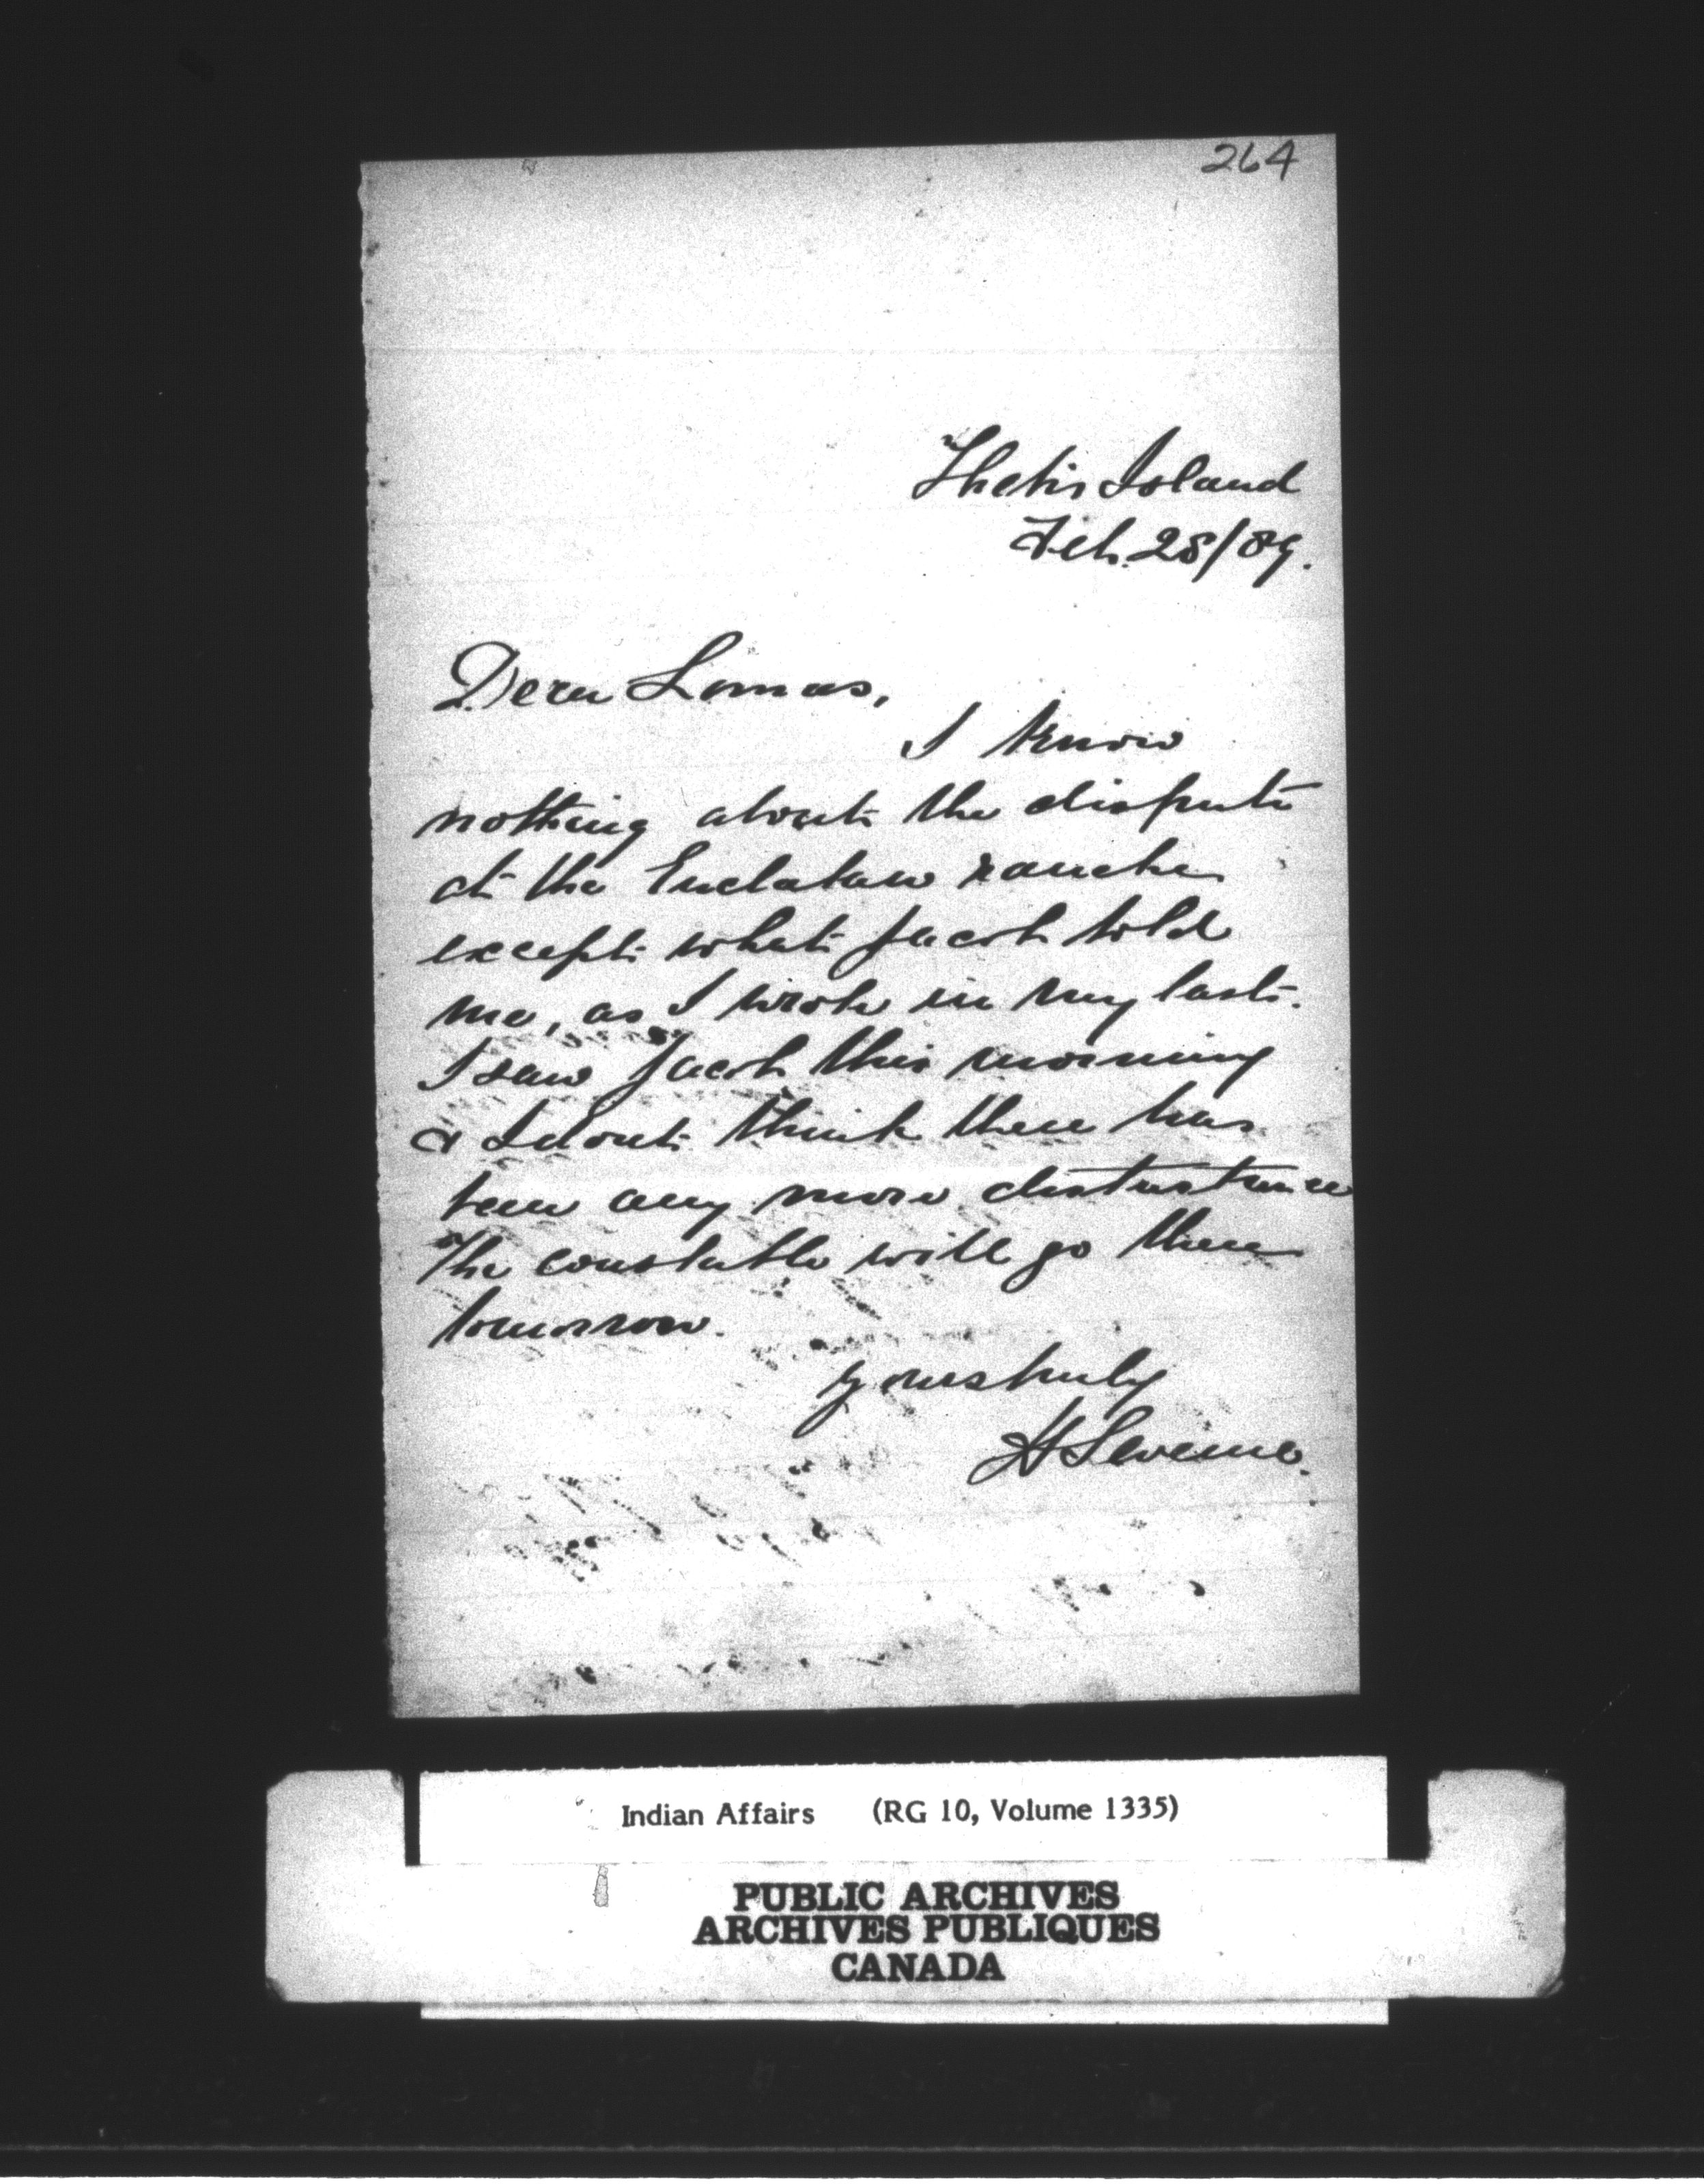 264
Thetis Island
Feb. 28/89.
Dear Lomas,
I know
nothing about the dispute
at the Euclataw ranche
except what Jacob told
me, as I wrote in my last.
I saw Jacob this morning
& I dont think there has
been any more disturbance
The constable will go there
tomorrow.
yours truly
H
Indian Affairs (RG 10, Volume 1335)
PUBLIC ARCHIVES
ARCHIVES PUBLIQUES
CANADA